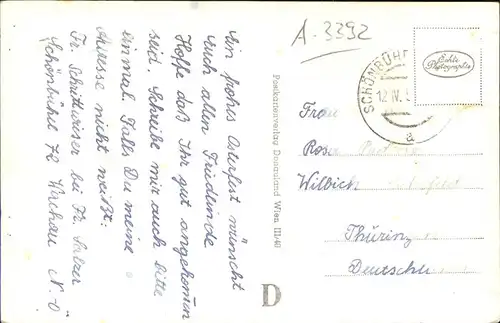 A-3392
Ein frohes Osterfest wünscht
Euch allen Friedlinde.
Hoffe daß Ihr gut angekommen
seid. Schreibe mir auch bitte
einmal. Falls Du meine
Adresse nicht weißt:
Fr. bei Fr.
Schönbühel 72 N.Ö
Postkartenverlag Donauland Wien III/40
D
Echte
Photographie
SCHÖNBÜHE
12.IV.
a
Frau
Rosa
Wilbich
Thüring
Deutschl